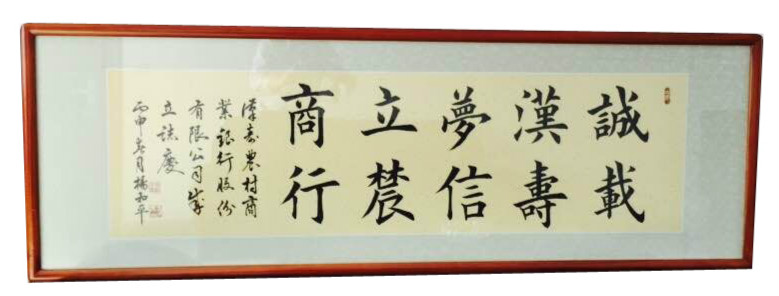 誠載
漢壽
夢信
立農
商行
漢壽農村商
業銀行股份
有限公司成
立誌慶
丙申春月楊和平